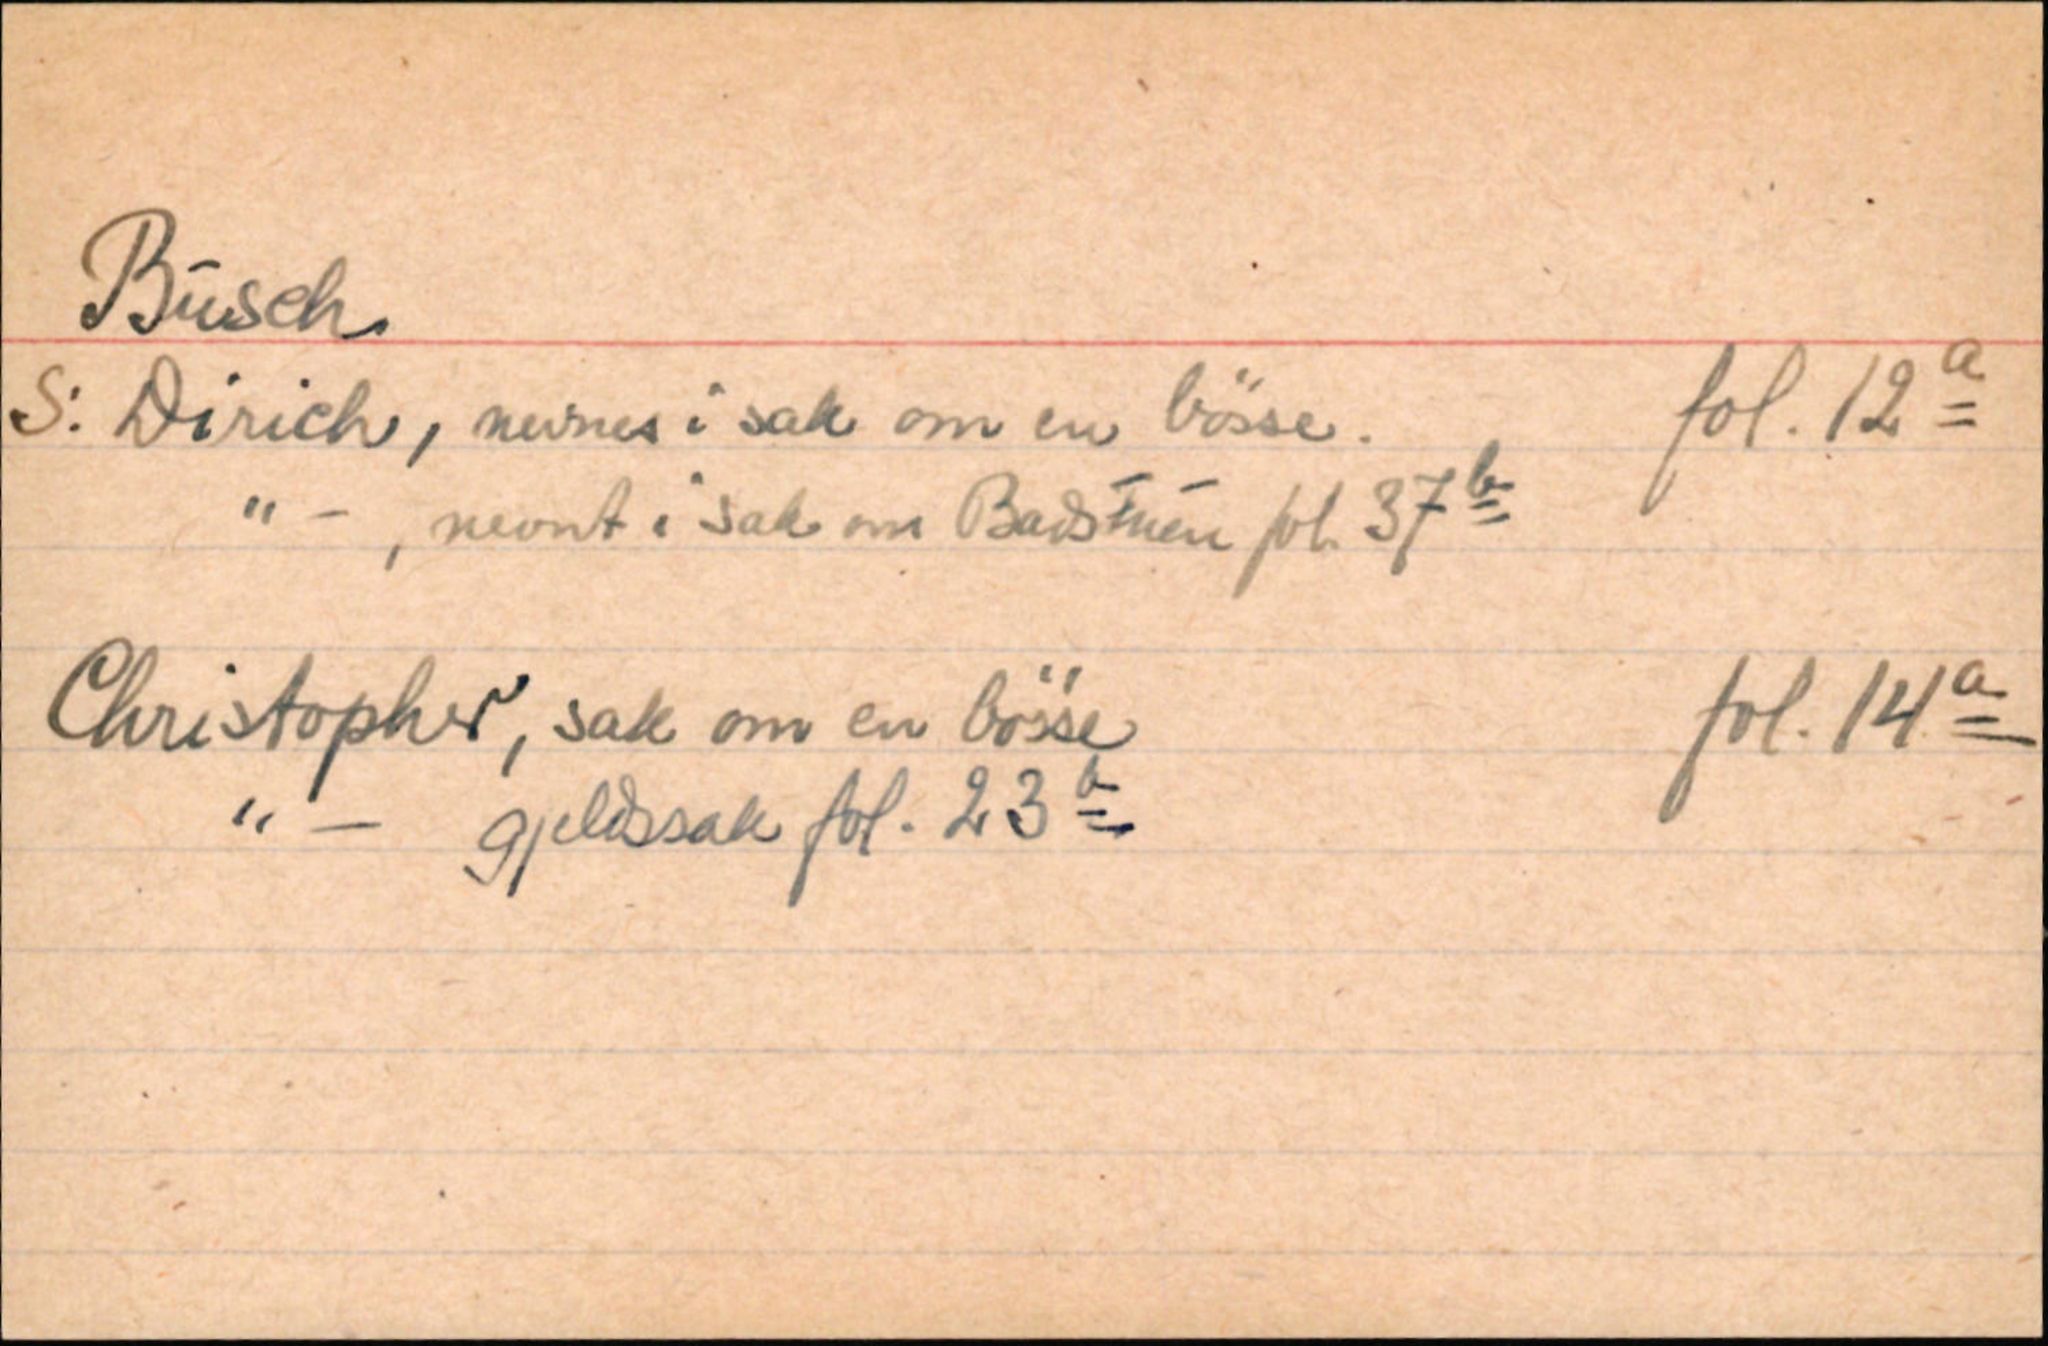 Busch.
S: Dirich, nevnes i sak om en bösse. fol. 12a
" – , nevnt i sak om Badstuen fol. 37b
Christopher, sak om en bösse fol. 14a
" – gjeldssak fol. 23b